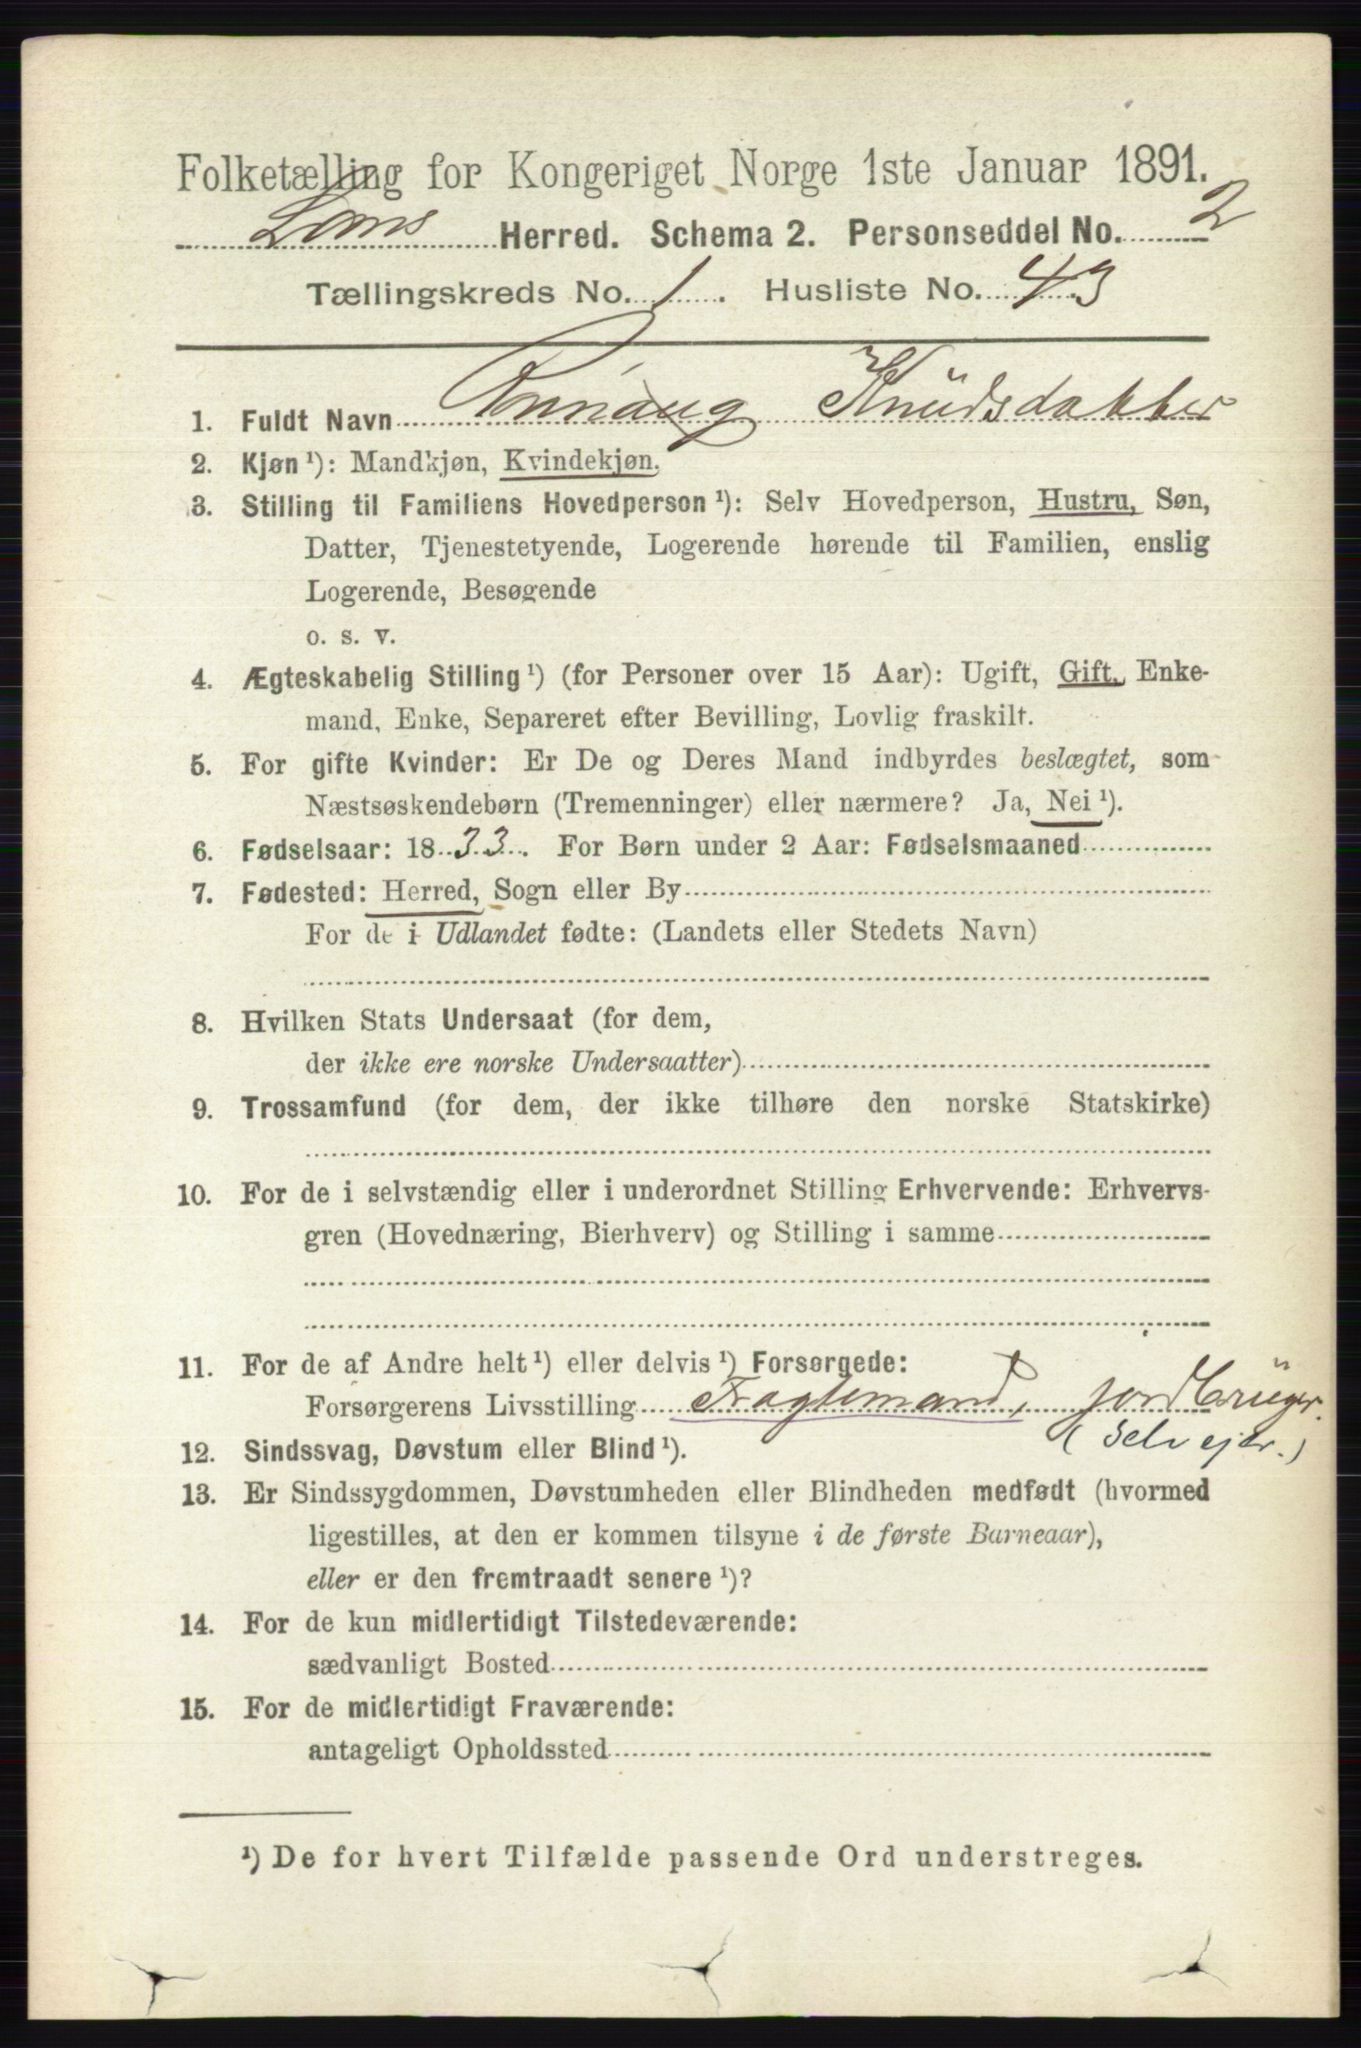 Folketælling for Kongeriget Norge 1ste Januar 1891.
Loms Herred. Schema 2. Personseddel No. 2
Tællingskreds No. 1. Husliste No. 43
1. Fuldt Navn Rønnaug Knudsdatter
2. Kjøn ¹): Mandkjøn, Kvindekjøn.
3. Stilling til Familiens Hovedperson ¹): Selv Hovedperson, Hustru, Søn,
Datter, Tjenestetyende, Logerende hørende til Familien, enslig
Logerende, Besøgende
o. s. v.
4. Ægteskabelig Stilling ¹) (for Personer over 15 Aar): Ugift, Gift, Enke-
mand, Enke, Separeret efter Bevilling, Lovlig fraskilt.
5. For gifte Kvinder: Er De og Deres Mand indbyrdes beslægtet, som
Næstsøskendebørn (Tremenninger) eller nærmere? Ja, Nei ¹).
6. Fødselsaar: 1833. For Børn under 2 Aar: Fødselsmaaned
7. Fødested: Herred, Sogn eller By
For de i Udlandet fødte: (Landets eller Stedets Navn)
8. Hvilken Stats Undersaat (for dem,
der ikke ere norske Undersaatter)
9. Trossamfund (for dem, der ikke tilhøre den norske Statskirke)
10. For de i selvstændig eller i underordnet Stilling Erhvervende: Erhvervs-
gren (Hovednæring, Bierhverv) og Stilling i samme
11. For de af Andre helt ¹) eller delvis ¹) Forsørgede:
Forsørgerens Livsstilling Fragtemand, jordbruger.
(Selvejer.)
12. Sindssvag, Døvstum eller Blind ¹).
13. Er Sindssygdommen, Døvstumheden eller Blindheden medfødt (hvormed
ligestilles, at den er kommen tilsyne i de første Barneaar),
eller er den fremtraadt senere ¹)?
14. For de kun midlertidigt Tilstedeværende:
sædvanligt Bosted
15. For de midlertidigt Fraværende:
antageligt Opholdssted
¹) De for hvert Tilfælde passende Ord understreges.